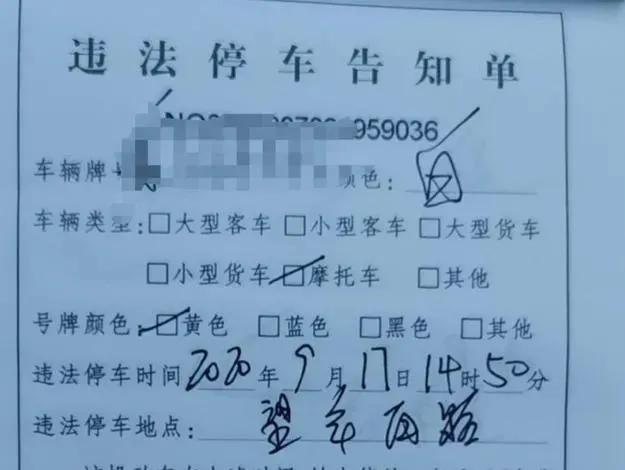 违法停车告知单
959036
车辆牌 颜色:
车辆类型:□大型客车 □小型客车 □大型货车
□小型货车 □摩托车 □其他
号牌颜色:□黄色 □蓝色 □黑色 □其他
违法停车时间2020年9月17日14时50分
违法停车地点: 望 西路